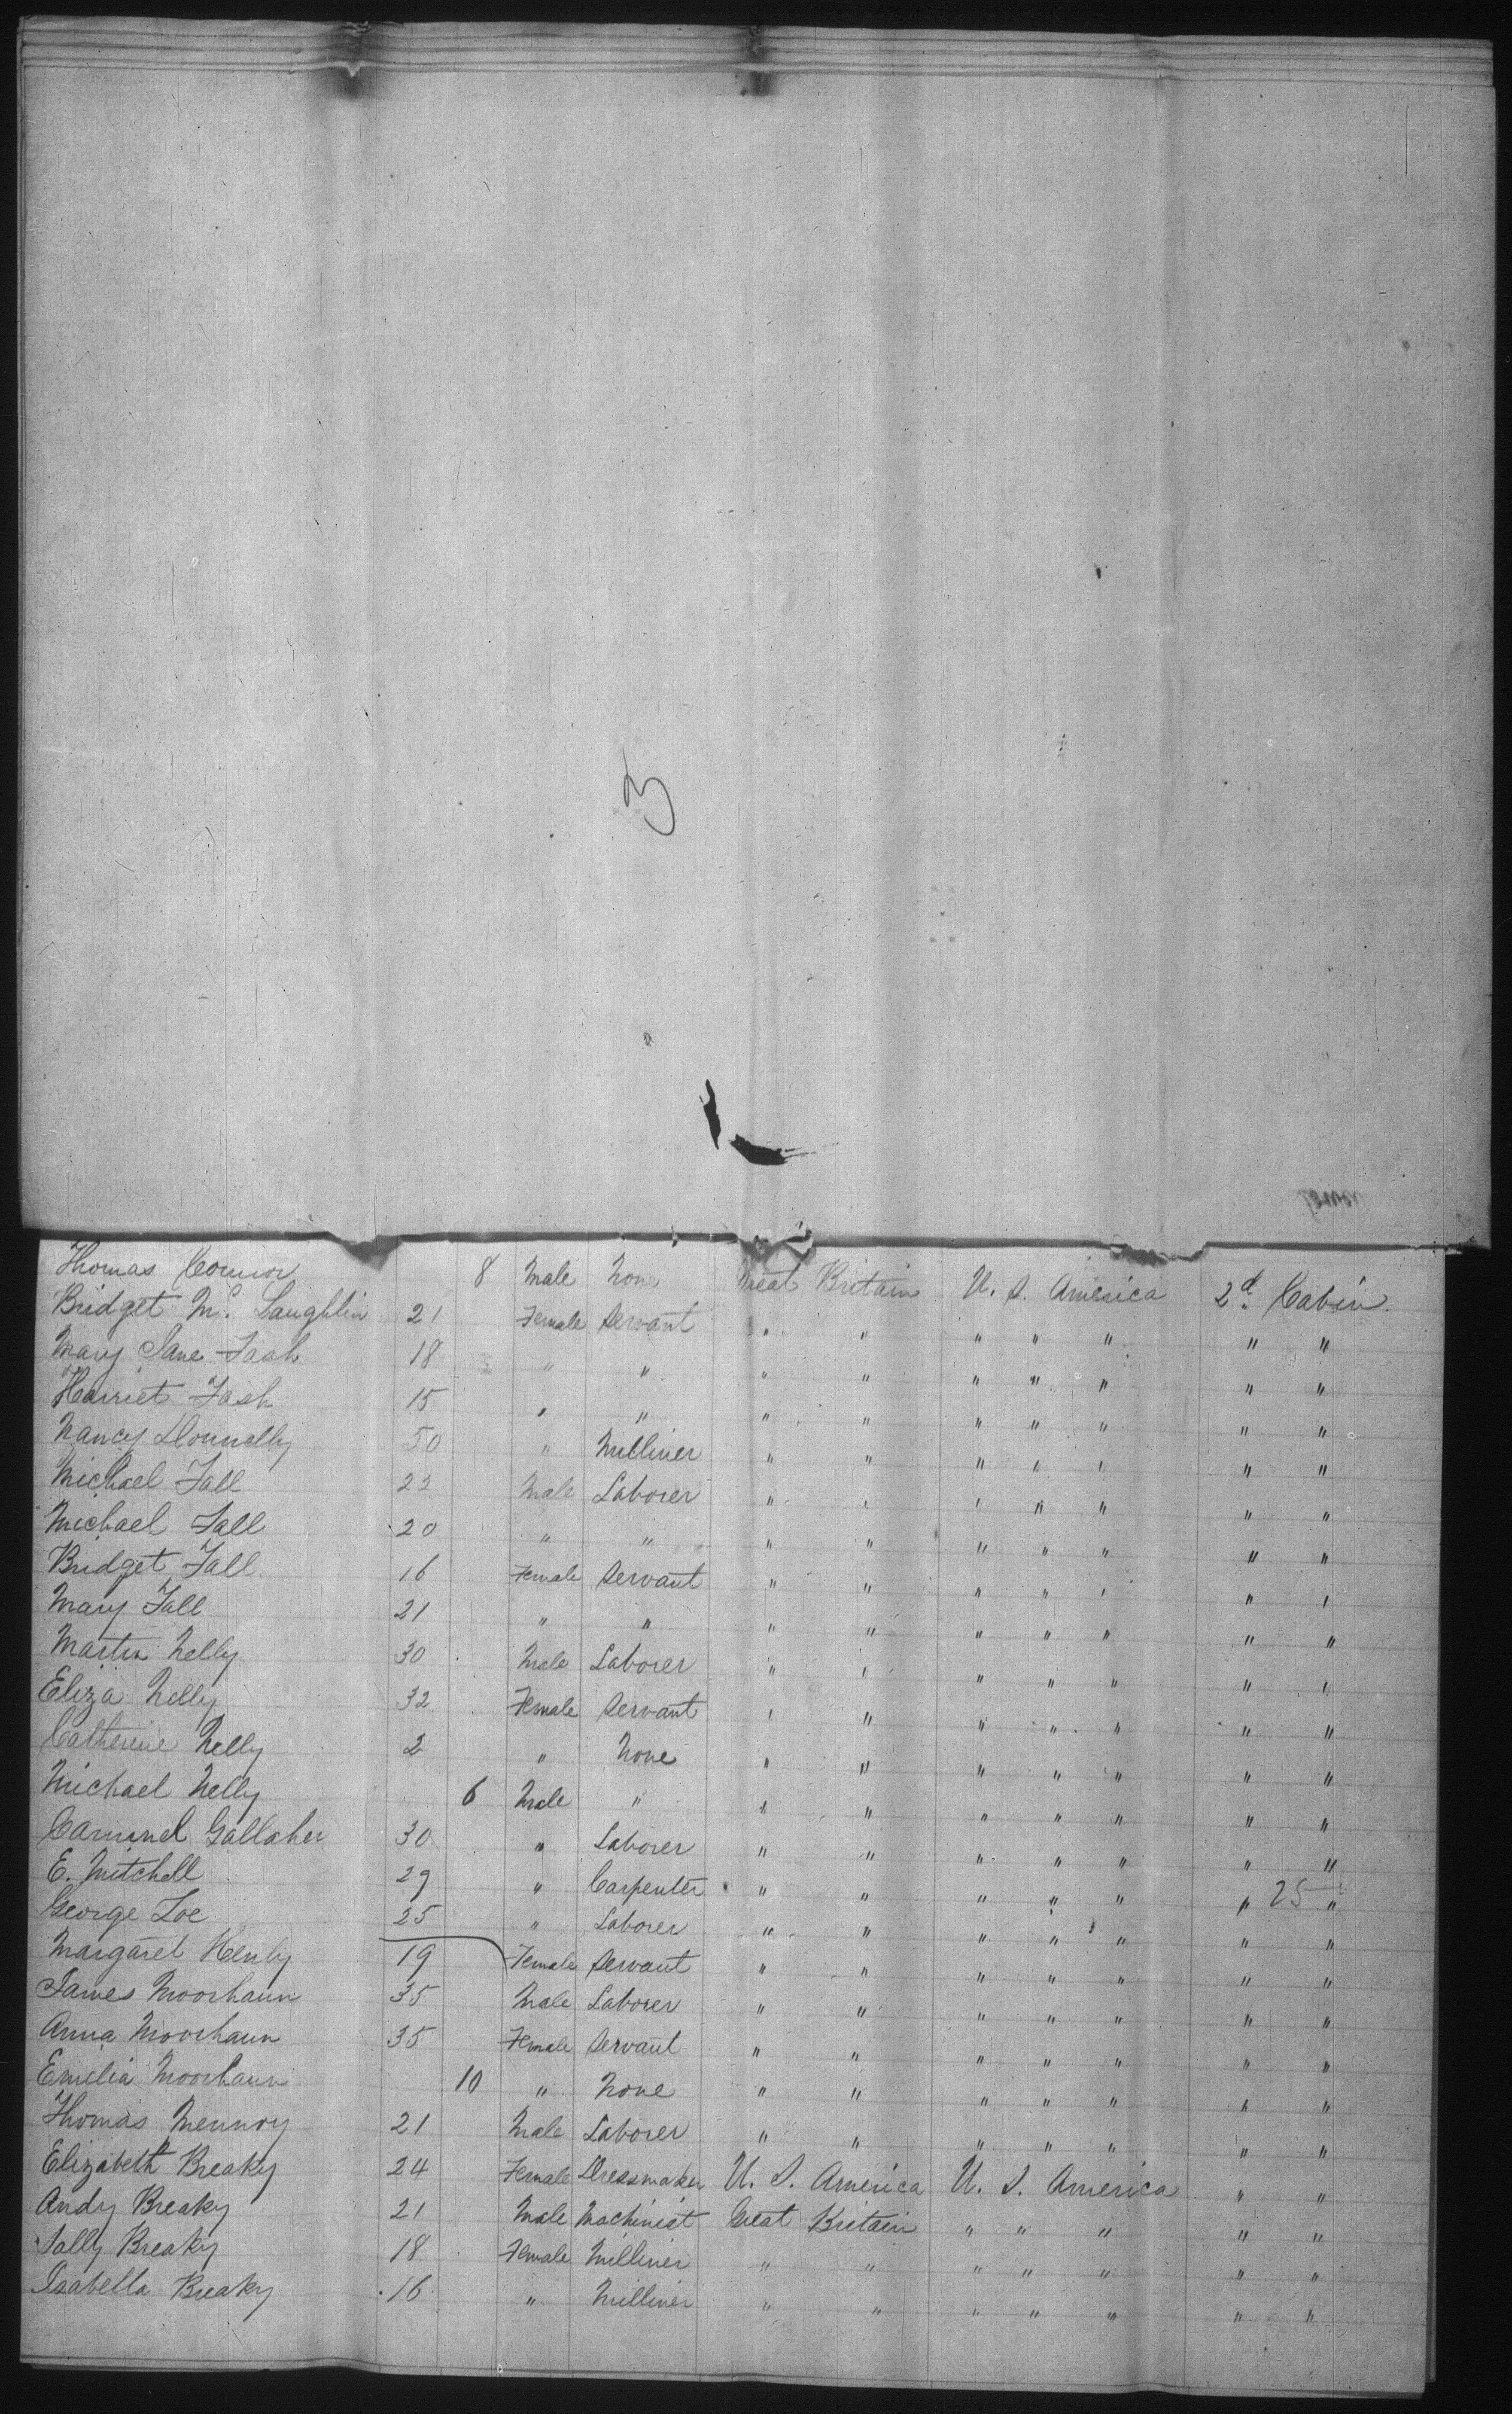 3
Thomas Connor 8 Male None Great Britain U. S. America 2d Cabin.
Bridget Mc. Laughlin 21 Female Servant " " " " " " "
Mary Jane Fash 18 " " " " " " " " "
Harriet Fash 15 " " " " " " " " "
Nancy Donnelly 50 " Milliner " " " " " " "
Michael Fall 22 Male Laborer " " " " " " "
Michael Fall 20 " " " " " " " " "
Bridget Fall 16 Female Servant " " " " " " "
Mary Fall 21 " " " " " " " " "
Martin Nelly 30 Male Laborer " " " " " " "
Eliza Nelly 32 Female Servant " " " " " " "
Catherine Nelly 2 " None " " " " " " "
Michael Nelly 6 Male " " " " " " " "
Gallaher 30 " Laborer " " " " " " "
E. Mitchell 29 " Carpenter " " " " " " 25 "
George Loe 25 " Laborer " " " " " " "
Margaret Henly 19 Female Servant " " " " " " "
James Moorhaun 35 Male Laborer " " " " " " "
Anna Moorhaun 35 Female Servant " " " " " " "
Emelia Moorhaun 10 " None " " " " " " "
Thomas 21 Male Laborer " " " " " " "
Elizabeth Breaky 24 Female Dressmaker U. S. America U. S. America " "
Andy Breaky 21 Male Machinist Great Britain " " " " "
Sally Breaky 18 Female Milliner " " " " " " "
Isabella Breaky 16 " Milliner " " " " " " "